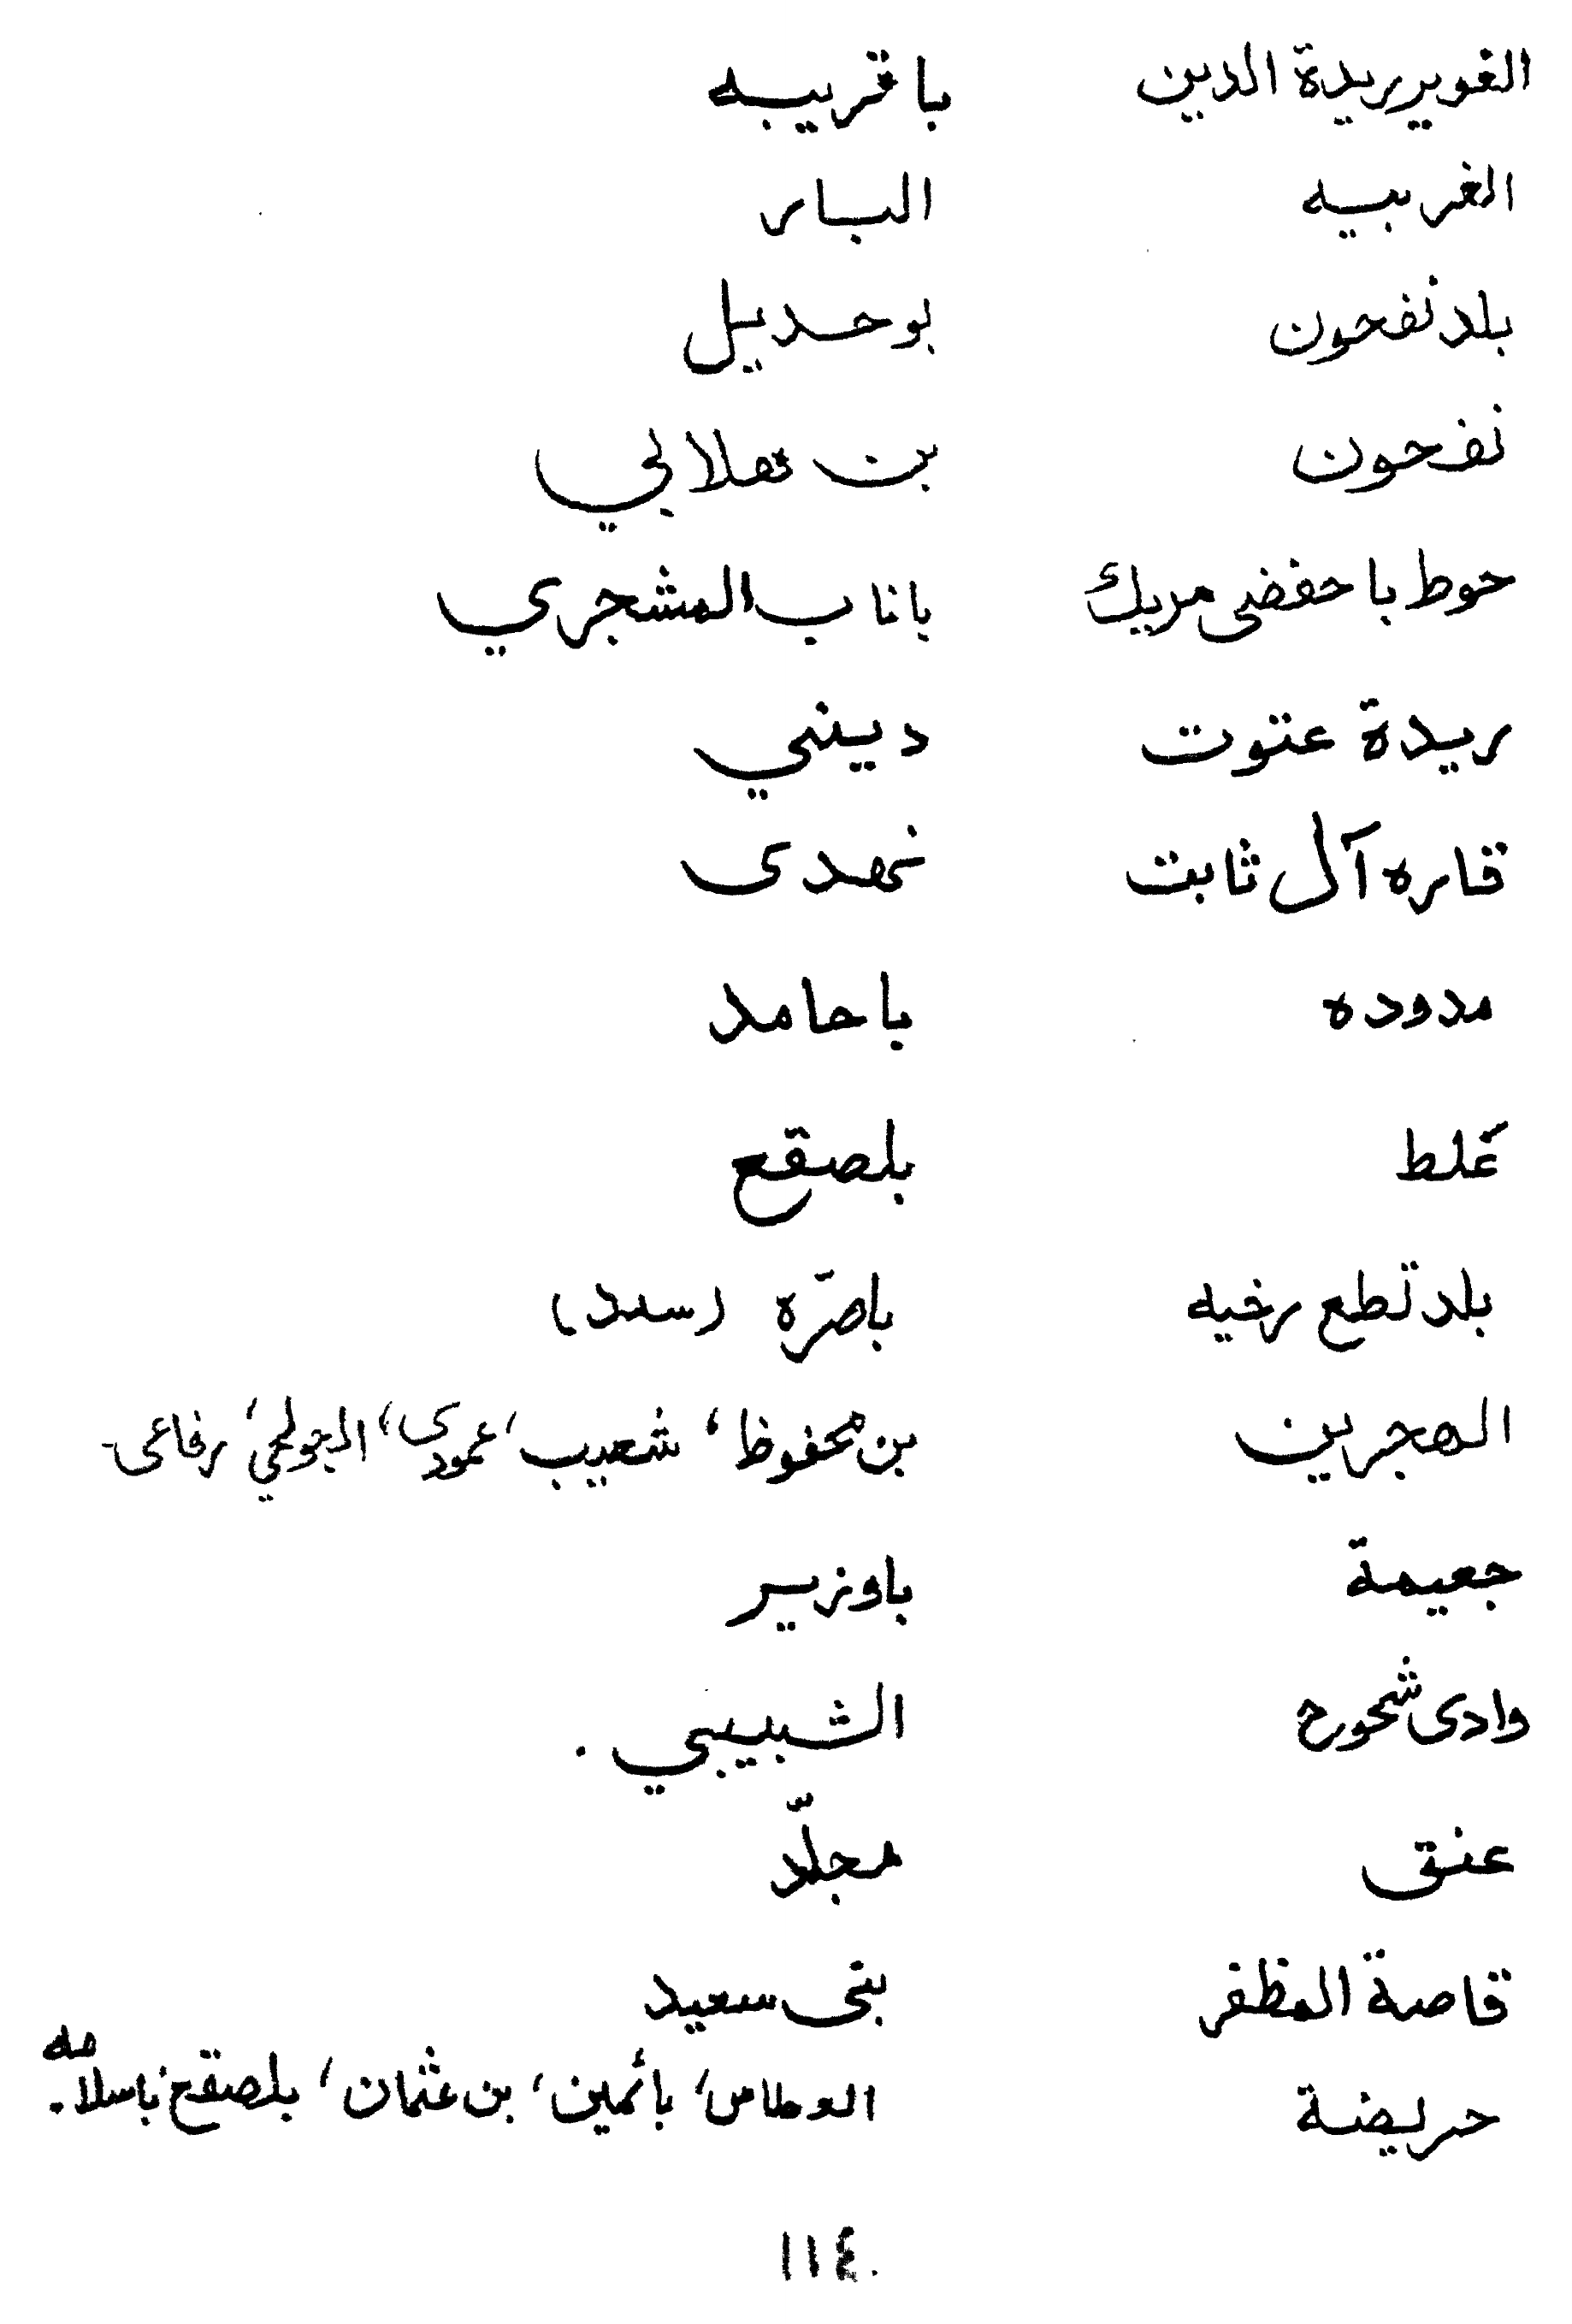 الغويريدة الدين باقريبه
الغربيه البار
بلد نفحون بو حديل
نفحون بن تعلابي
حوط باحفضى مريك باناب المشجري
ريدة عنوت ديني
قاره آل ثابت نهدى
مدوده باحامد
غلط بلصقع
بلد تطع رخيه باصرّه (سدد)
الهجرين بن محفوظ، شعيب، عمودى، رفاعى
جعيمة باوزير
وادى شحورح الشبيبي.
عنق مجلّد
قاصة المظفر بنى سعيد
حريضة العطاس، بن عثمان، بلصقع، باسلامه.
١١٤